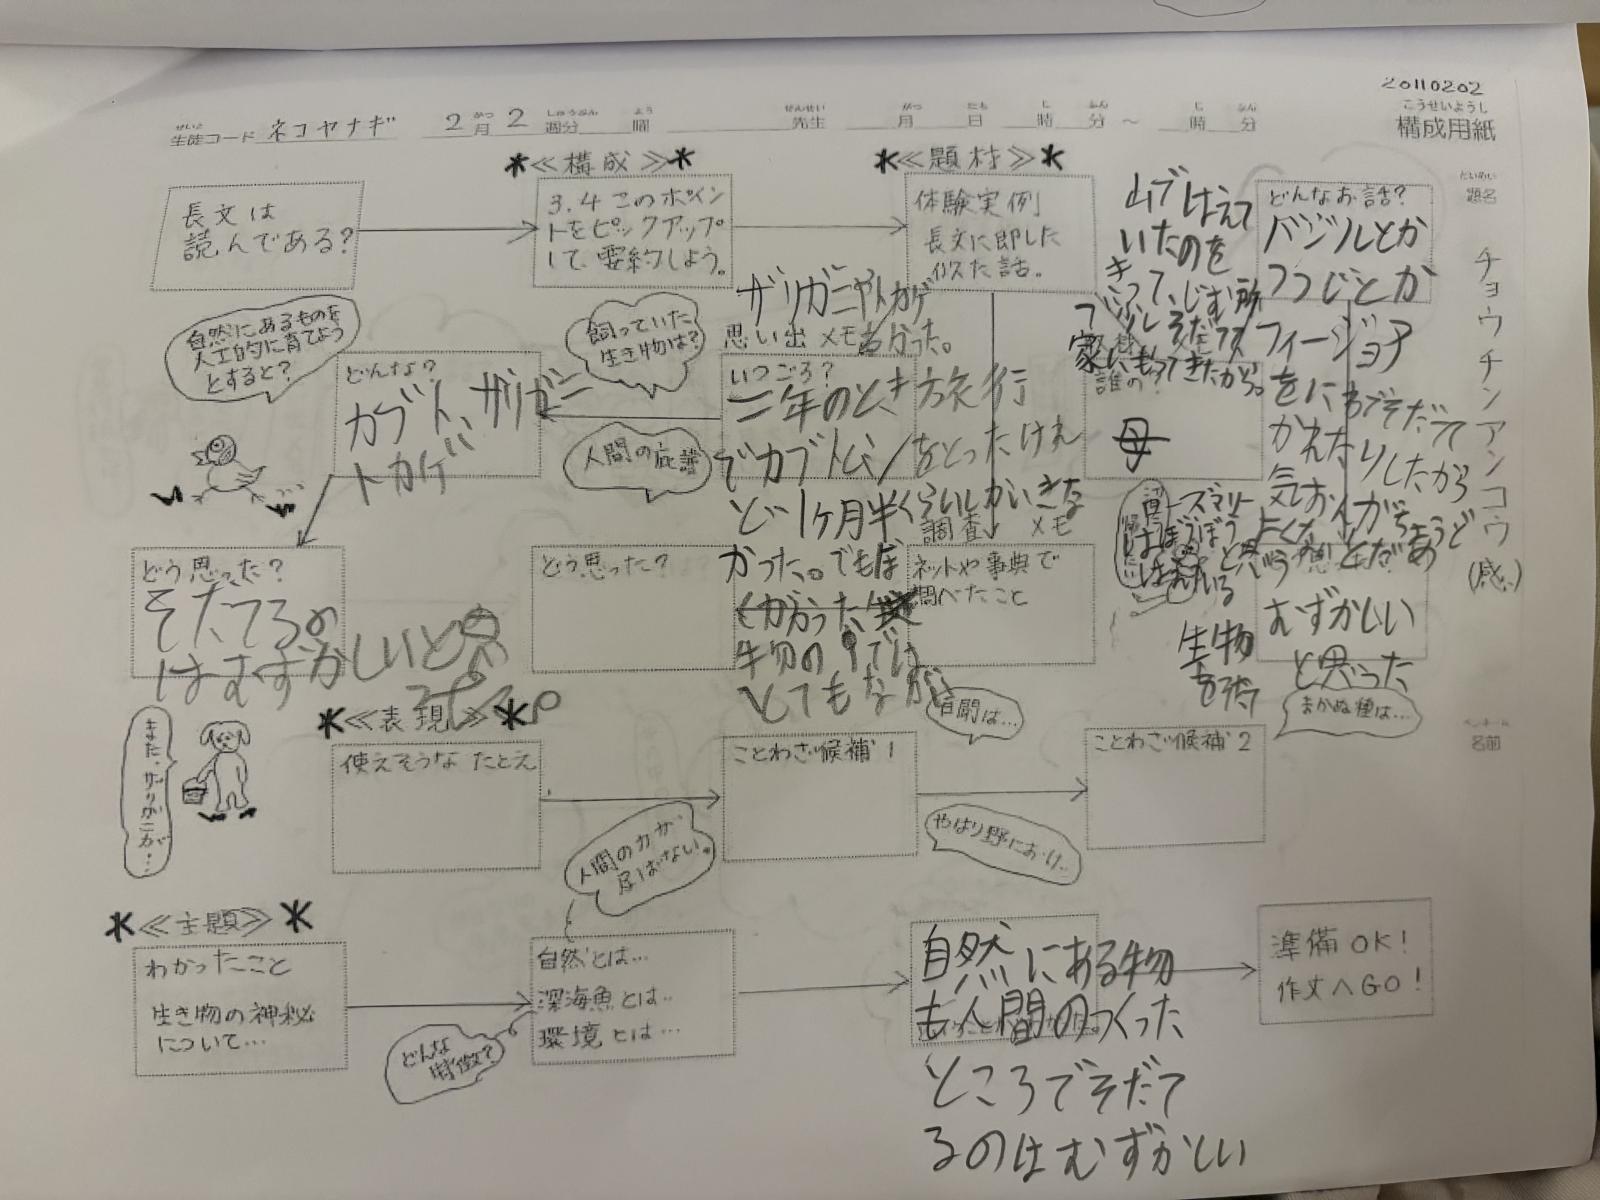 20110202
こうせいようし
構成用紙
せいと
生徒コード ネコヤナギ 2月2週分 曜 先生 月 日 時 分 ～ 時 分
だいめい
題名
チョウチンアンコウ(感)
ペンネーム
名前
＊≪構成≫＊
＊≪題材≫＊
長文は
読んである?
3.4このポイン
トをピックアップ
して、要約しよう。
体験実例
長文に即した
似た話。
どんなお話?
バジルとか
つつじとか
フィージョア
をにわでそだてて
かえたりしたから
むずかしい
と思った
山ではえて
いたのを
家にもってきたから。
誰の?
母
生物
をそだ
ザリガニやトカゲ
も分った。
思い出 メモ
いつごろ?
二年のとき旅行
でカブトムシをとったけれ
ど1ヶ月半くらいしかいきな
かった。でもぼ
くがかった
生物の中では
とてもながい
飼っていた
生き物は?
人間の庇護
どんな?
カブト、ザリガニ
トカゲ
自然にあるものを
人工的に育てよう
とすると?
どう思った?
そだてるの
はむずかしいと
どう思った?
調査 メモ
ネットや事典で
調べたこと
＊≪表現≫＊
使えそうな たとえ
ことわざ候補 1
ことわざ候補 2
百聞は…
まかぬ種は…
やはり野におけ…
また、ザリガニが…
人間の力が
及ばない。
＊≪主題≫＊
わかったこと
生き物の神秘
について…
どんな
特徴?
自然とは…
深海魚とは…
環境とは…
自然にある生物
も人間のつくった
ところでそだて
るのはむずかしい
準備OK!
作文へGO!